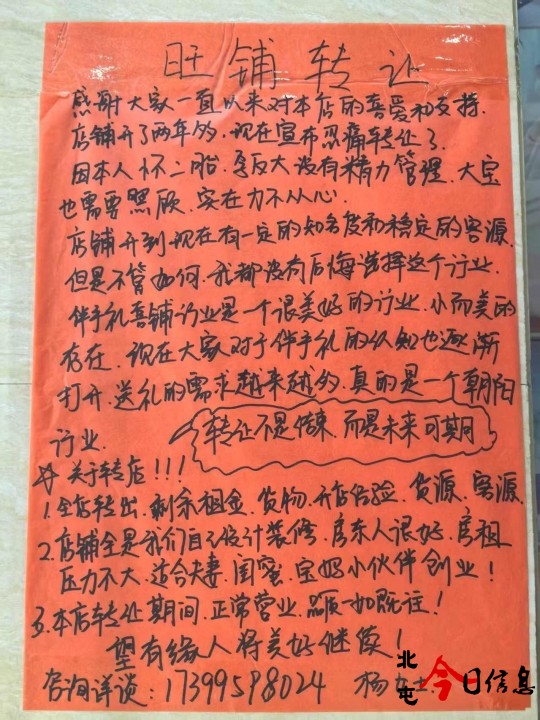 旺铺转让
感谢大家一直以来对本店的喜爱和支持.
店铺开了两年多,现在宣布忍痛转让了
因本人怀二胎,孕反大没有精力管理,大宝
也需要照顾,实在力不从心.
店铺开到现在有一定的知名度和稳定的客源,
但是不管如何,我都没有后悔选择这个行业.
伴手礼喜铺行业是一个很美好的行业,小而美的
存在,现在大家对于伴手礼的认知也逐渐
打开,送礼的需求越来越多,真的是一个朝阳
行业.
转让不是结束,而是未来可期
关于转店!!!
1.全店转出,剩余租金,货物,开店经验,货源,客源
2.店铺全是我们自己设计装修,房东人很好,房租
压力不大,适合夫妻,闺蜜,宝妈小伙伴创业!
3.本店转让期间,正常营业,品质一如既往!
望有缘人将美好继续!
咨询详谈:17399598024 杨女士
北屯今日信息